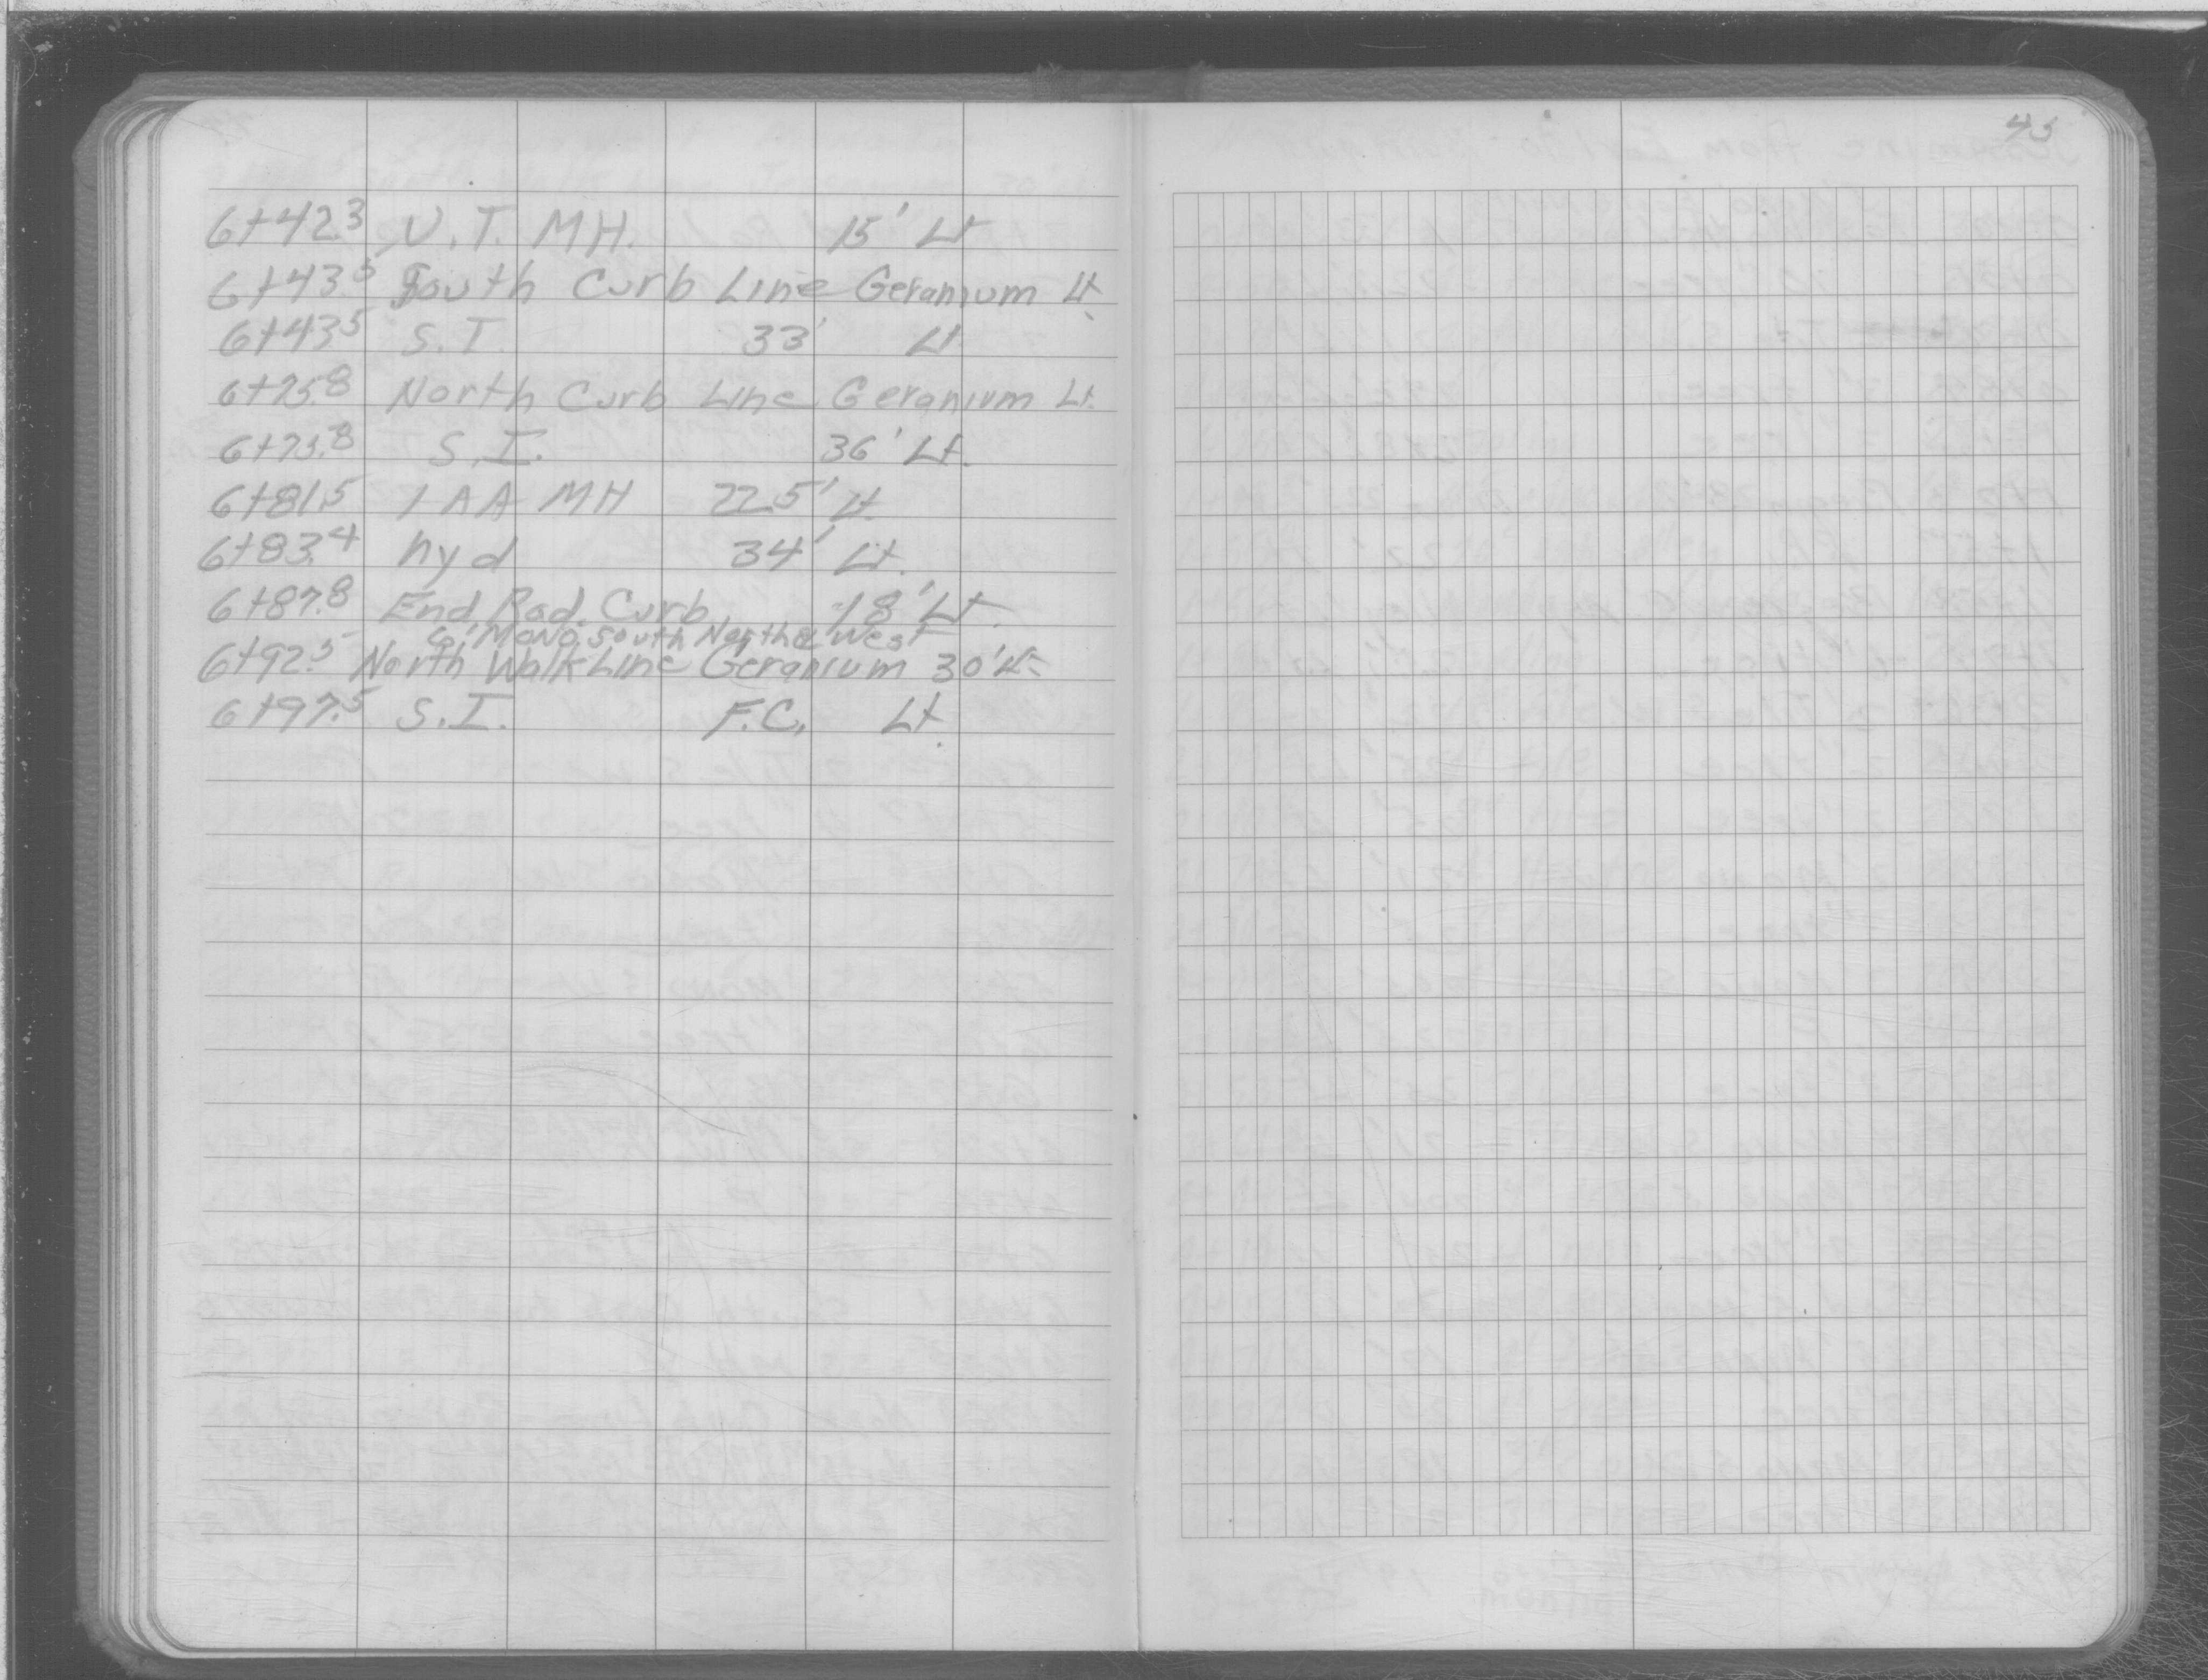 43
6+42.3 U.T. MH. 15' Lt
6+43.5 South Curb Line Geranium Lt.
6+43.5 S.I. 33' Lt
6+75.8 North Curb Line Geranium Lt.
6+75.8 S.I. 36' Lt.
6+81.5 1 AA MH 22.5' Lt.
6+83.4 hyd 34' Lt.
6+87.8 End Rad. Curb 18' Lt.
6' Mono. South North & West
6+92.5 North Walk Line Geranium 30' Lt.
6+97.5 S.I. F.C. Lt.